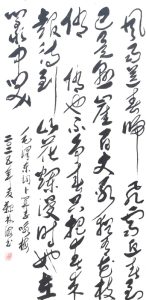 风雨送春归飞雪迎春到
已是悬崖百丈冰犹有花枝
俏俏也不争春只把春来
报待到山花烂漫时她在
丛中笑
毛泽东词卜算子咏梅
二〇一五年
书